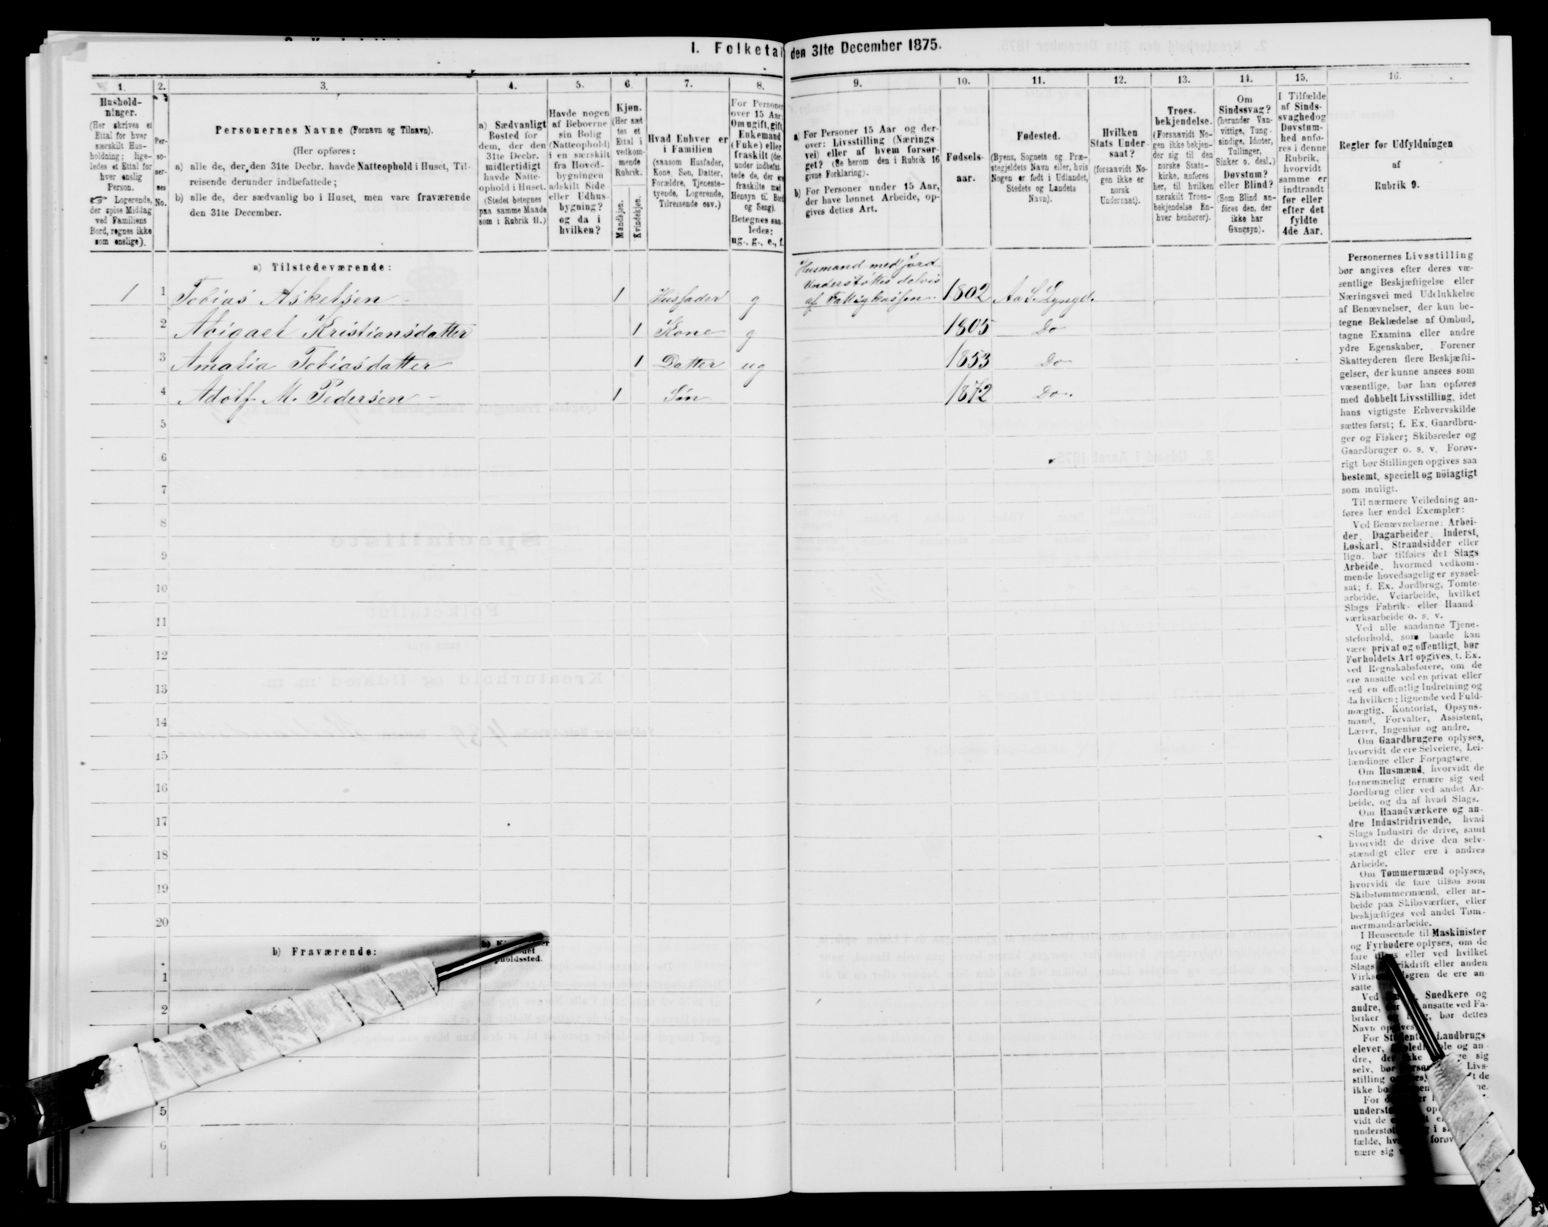 I. Folketa den 31te December 1875.
1.
Hushold-
ninger.
(Her skrives et
Ettal for hver
særskilt Hus-
holdning; lige-
ledes et Ettal for
hver enslig
Person.
☞ Logerende,
der spise Middag
ved Familiens
Bord, regnes ikke
som enslige).
2.
Per-
so-
ner-
nes
No.
3.
Personernes Navne (Fornavn og Tilnavn).
(Her opføres:
a) alle de, der den 31te Decbr. havde Natteophold i Huset, Til-
reisende derunder indbefattede;
b) alle de, der sædvanlig bo i Huset, men vare fraværende
den 31te December.
4.
a) Sædvanligt
Bosted for
dem, der den
31te Decbr.
midlertidigt
havde Natte-
ophold i Huset.
(Stedet betegnes
paa samme Maade
som i Rubrik 11.)
5.
Havde nogen
af Beboerne
sin Bolig
(Natteophold)
i en særskilt
fra Hoved-
bygningen
adskilt Side
eller Udhus-
bygning?
og da i
hvilken?
6.
Kjøn.
(Her sæt
tes et
Ettal i
vedkom-
mende
Rubrik.
Mandkjøn.
Kvindekjøn.
7.
Hvad Enhver er
i Familien
(saasom Husfader,
Kone, Søn, Datter,
Forældre, Tjeneste-
tyende, Logerende,
Tilreisende osv.)
8.
For Persone
over 15 Aar
Om ugift, gift
Enkemand
(Enke) eller
fraskilt
Betegnes saa-
ledes:
ug., g., e., f.
9.
a) For Personer 15 Aar og der-
over: Livsstilling (Nærings
vei) eller af hvem forsør-
get? (Se herom den i Rubrik 16
givne Forklaring).
b) For Personer under 15 Aar,
der have lønnet Arbeide, op-
gives dettes Art.
10.
Fødsels-
aar.
11.
Fødested.
(Byens, Sognets og Præ-
stegjeldets Navn eller, hvis
Nogen er født i Udlandet,
Stedets og Landets
Navn).
12.
Hvilken
Stats Under-
saat?
(forsaavidt No-
gen ikke er
norsk
Undersaat).
13.
Troes-
bekjendelse.
(Forsaavidt No-
gen ikke bekjen-
der sig til den
norske Stats-
kirke, anføres
her, til hvilken
særskilt Troes-
bekjendelse En-
hver henhører).
14.
Om
Sindssvag?
(herunder Van-
vittige, Tung-
sindige, Idioter,
Tullinger,
Sinker o. desl.)
Døvstum?
eller Blind?
(Som Blind an-
føres den, der
ikke har
Gangsyn).
15.
I Tilfælde
af Sinds-
svaghed og
Døvstum-
hed anfø-
res i denne
Rubrik,
hvorvidt
samme er
indtraadt
før eller
efter det
fyldte
4de Aar.
16.
Regler for Udfyldningen
af
Rubrik 9.
a) Tilstedeværende:
Husmand med Jord
Understøttes delvis
af Fattigkassen.
1 1 Tobias Askelsen 1 Husfader g 1802 A. S. Lyngd.
2 Abigael Kristiansdatter 1 Kone g 1805 Do
3 Amalia Tobiasdatter 1 Datter ug 1853 Do
4 Adolf M. Pedersen 1 Søn 1872 Do
5
6
7
8
9
10
11
12
13
14
15
16
17
18
19
20
b) Fraværende:
1
2
5
6
Personernes Livsstilling
bør angives efter deres væ-
sentlige Beskjæftigelse eller
Næringsvei med Udelukkelse
af Benævnelser, der kun be-
tegne Beklædelse af Ombud,
tagne Examina eller andre
ydre Egenskaber. Forener
Skatteyderen flere Beskjæfti-
gelser, der kunne ansees som
væsentlige, bør han opføres
med dobbelt Livsstilling, idet
hans vigtigste Erhvervskilde
sættes først; f. Ex. Gaardbru-
ger og Fisker; Skibsreder og
Gaardbruger o. s. v. Forøv-
rigt bør Stillingen opgives saa
bestemt, specielt og nøiagtigt
som muligt.
Til nærmere Veiledning an-
føres her endel Exempler:
Ved Benævnelserne: Arbei-
der, Dagarbeider, Inderst,
Løskarl, Strandsidder eller
lign. bør tilføies det Slags
Arbeide, hvormed vedkom-
mende hovedsagelig er syssel-
sat; f. Ex. Jordbrug, Tomte-
arbeide, Veiarbeide, hvilket
Slags Fabrik- eller Haand
værksarbeide o. s. v.
Ved alle saadanne Tjene-
steforhold, som baade kan
være privat og offentligt, bør
Forholdets Art opgives, t. Ex.
ved Regnskabsførere, om de
ere ansatte ved en privat eller
ved en offentlig Indretning og
da hvilken; lignende ved Fuld-
mægtig, Kontorist, Opsyns-
mand, Forvalter, Assistent,
Lærer, Ingeniør og andre.
Om Gaardbrugere oplyses,
hvorvidt de ere Selveiere, Lei-
lændinge eller Forpagtere.
Om Husmænd, hvorvidt de
fornemmelig ernære sig ved
Jordbrug eller ved andet Ar-
beide, og da af hvad Slags.
Om Haandværkere og an-
dre Industridrivende, hvad
Slags Industri de drive, samt
hvorvidt de drive den selv-
stændigt eller ere i andres
Arbeide.
Om Tømmermænd oplyses,
hvorvidt de fare tilsøs som
Skibstømmermænd, eller ar-
beide paa Skibsværfter, eller
beskjæftiges ved andet Tøm-
mermandsarbeide.
I Henseende til Maskinister
og Fyrbødere oplyses, om de
fare tilsøs eller ved hvilket